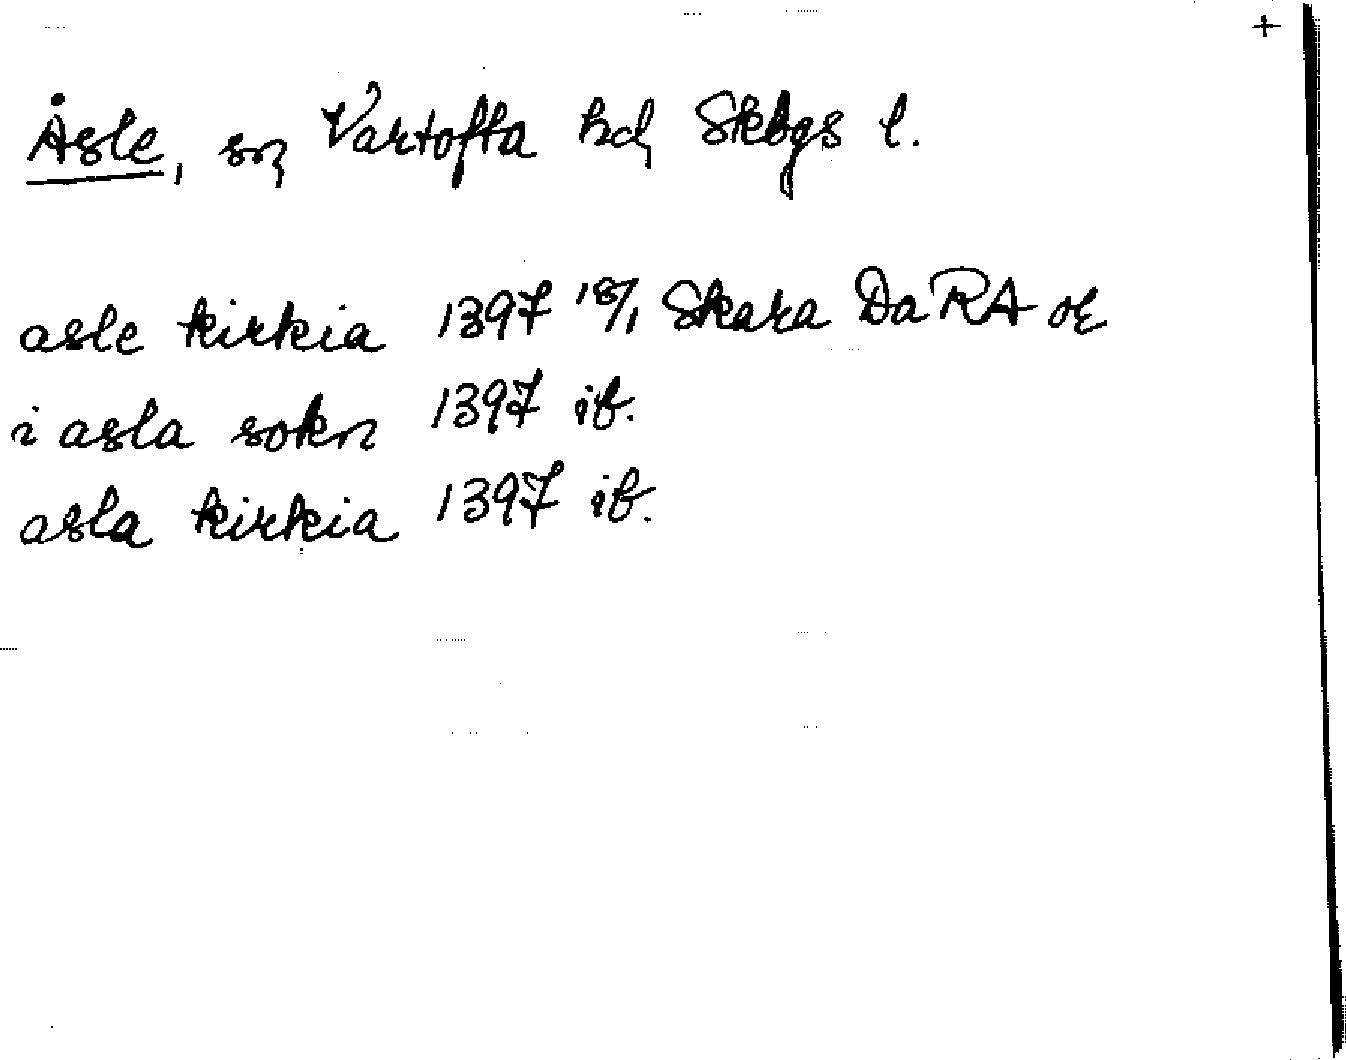 +
Åsle, sn Vartofta hd Skbgs l.
asle kirkia 1397 18/1 Skara Da RA or
i asla sokn 1397 ib.
asla kirkia 1397 ib.